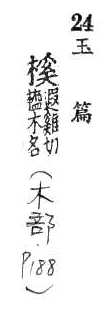 24
玉篇
榽
遐雞切
木名
(木部 P188)